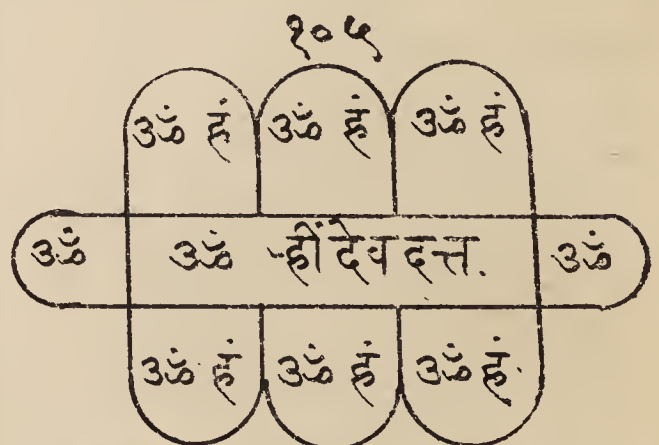 १०५
ॐ हं ॐ हं ॐ हं
ॐ ॐ ह्रीं देव दत्त. ॐ
ॐ हं ॐ हं ॐ हं